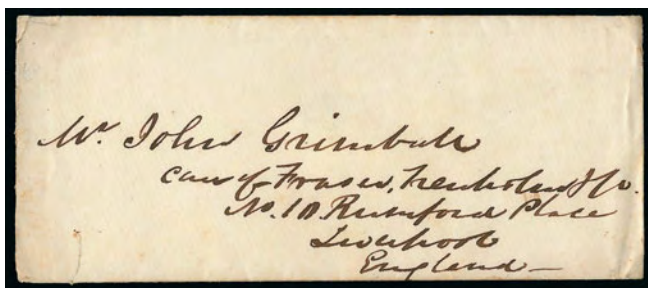 Mr. John Grimball
care of Fraser, Trenholm & Co.
No. 10 Rumford Place
Liverpool
England